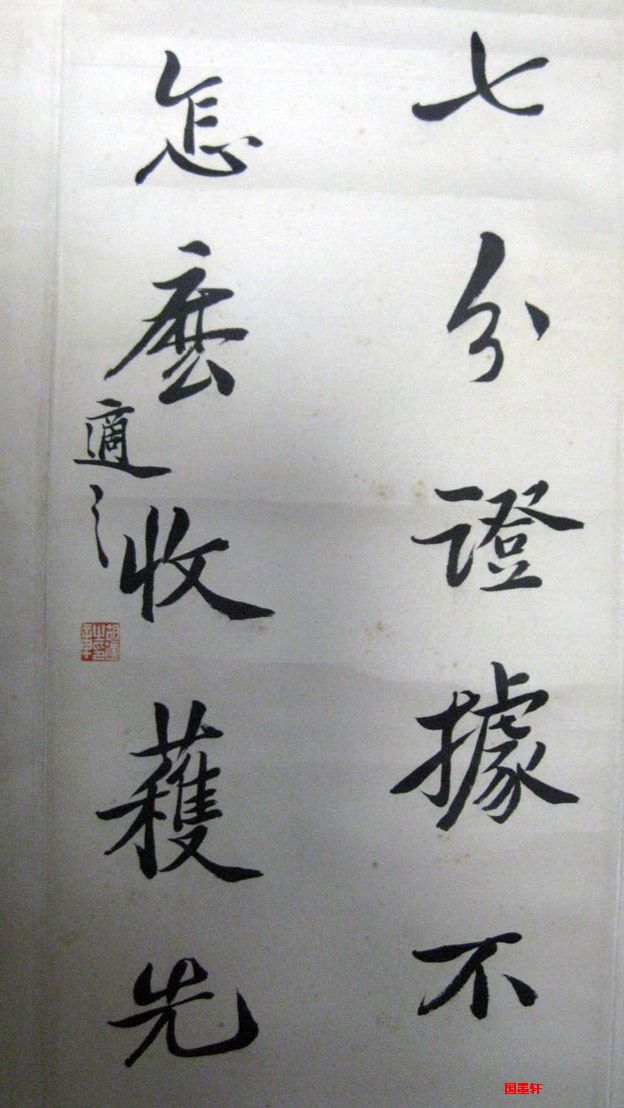 七分證據不
怎麼收穫先
適之
国墨轩